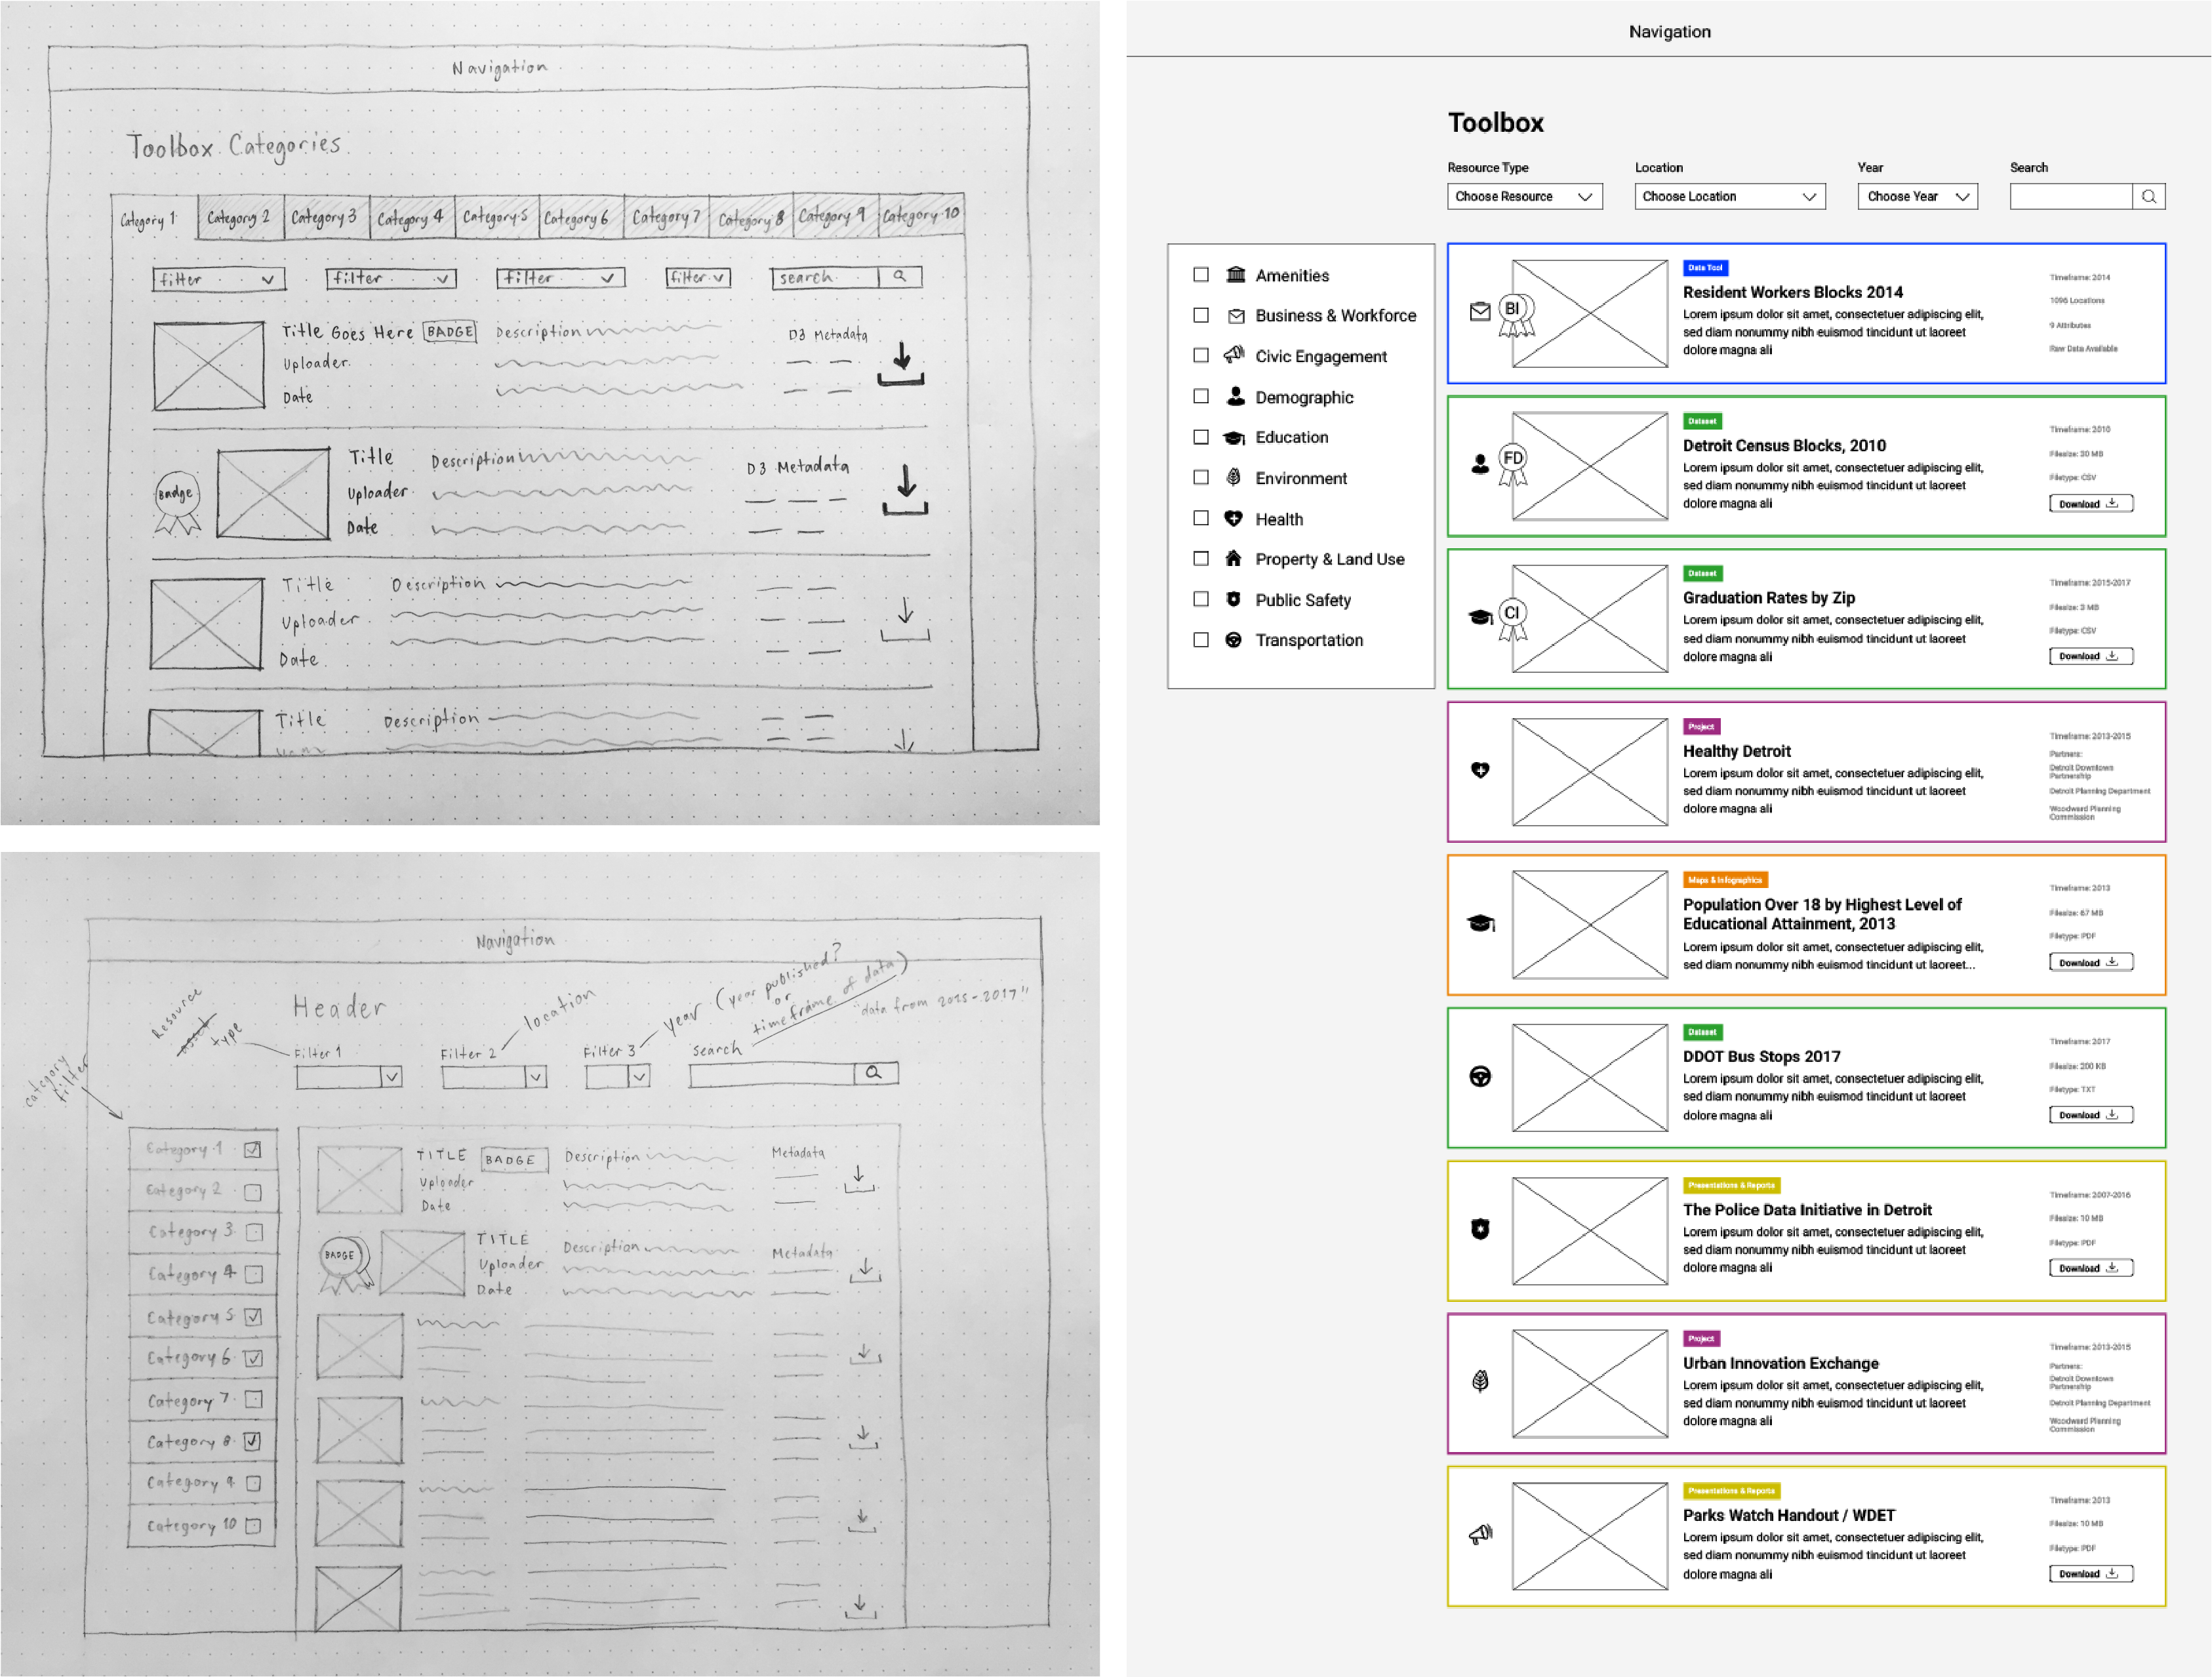 Navigation
Toolbox Categories
Category 1 Category 2 Category 3 Category 4 Category 5 Category 6 Category 7 Category 8 Category 9 Category 10
filter filter filter filter search
Title Goes Here BADGE Description D3 Metadata
Uploader
Date
Badge Title Description D3 Metadata
Uploader
Date
Title Description
Uploader
Date
Title Description
Navigation
Header
Resource
asset type
location
year (year published?
or
timeframe of data)
"data from 2015-2017"
category
filter
Filter 1 Filter 2 Filter 3 search
Category 1
Category 2
Category 3
Category 4
Category 5
Category 6
Category 7
Category 8
Category 9
Category 10
TITLE BADGE Description Metadata
Uploader
Date
BADGE TITLE Description Metadata
Uploader
Date
Navigation
Toolbox
Resource Type Location Year Search
Choose Resource Choose Location Choose Year
Amenities
Business & Workforce
Civic Engagement
Demographic
Education
Environment
Health
Property & Land Use
Public Safety
Transportation
BI
Data Tool
Resident Workers Blocks 2014
Lorem ipsum dolor sit amet, consectetuer adipiscing elit,
sed diam nonummy nibh euismod tincidunt ut laoreet
dolore magna ali
Timeframe: 2014
1096 Locations
9 Attributes
Raw Data Available
FD
Dataset
Detroit Census Blocks, 2010
Lorem ipsum dolor sit amet, consectetuer adipiscing elit,
sed diam nonummy nibh euismod tincidunt ut laoreet
dolore magna ali
Timeframe: 2010
Filesize: 30 MB
Filetype: CSV
Download
CI
Dataset
Graduation Rates by Zip
Lorem ipsum dolor sit amet, consectetuer adipiscing elit,
sed diam nonummy nibh euismod tincidunt ut laoreet
dolore magna ali
Timeframe: 2015-2017
Filesize: 3 MB
Filetype: CSV
Download
Project
Healthy Detroit
Lorem ipsum dolor sit amet, consectetuer adipiscing elit,
sed diam nonummy nibh euismod tincidunt ut laoreet
dolore magna ali
Timeframe: 2013-2015
Partners:
Detroit Downtown
Partnership
Detroit Planning Department
Woodward Planning
Commission
Maps & Infographics
Population Over 18 by Highest Level of
Educational Attainment, 2013
Lorem ipsum dolor sit amet, consectetuer adipiscing elit,
sed diam nonummy nibh euismod tincidunt ut laoreet...
Timeframe: 2013
Filesize: 67 MB
Filetype: PDF
Download
Dataset
DDOT Bus Stops 2017
Lorem ipsum dolor sit amet, consectetuer adipiscing elit,
sed diam nonummy nibh euismod tincidunt ut laoreet
dolore magna ali
Timeframe: 2017
Filesize: 200 KB
Filetype: TXT
Download
Presentations & Reports
The Police Data Initiative in Detroit
Lorem ipsum dolor sit amet, consectetuer adipiscing elit,
sed diam nonummy nibh euismod tincidunt ut laoreet
dolore magna ali
Timeframe: 2007-2016
Filesize: 10 MB
Filetype: PDF
Download
Project
Urban Innovation Exchange
Lorem ipsum dolor sit amet, consectetuer adipiscing elit,
sed diam nonummy nibh euismod tincidunt ut laoreet
dolore magna ali
Timeframe: 2013-2015
Partners:
Detroit Downtown
Partnership
Detroit Planning Department
Woodward Planning
Commission
Presentations & Reports
Parks Watch Handout / WDET
Lorem ipsum dolor sit amet, consectetuer adipiscing elit,
sed diam nonummy nibh euismod tincidunt ut laoreet
dolore magna ali
Timeframe: 2013
Filesize: 10 MB
Filetype: PDF
Download